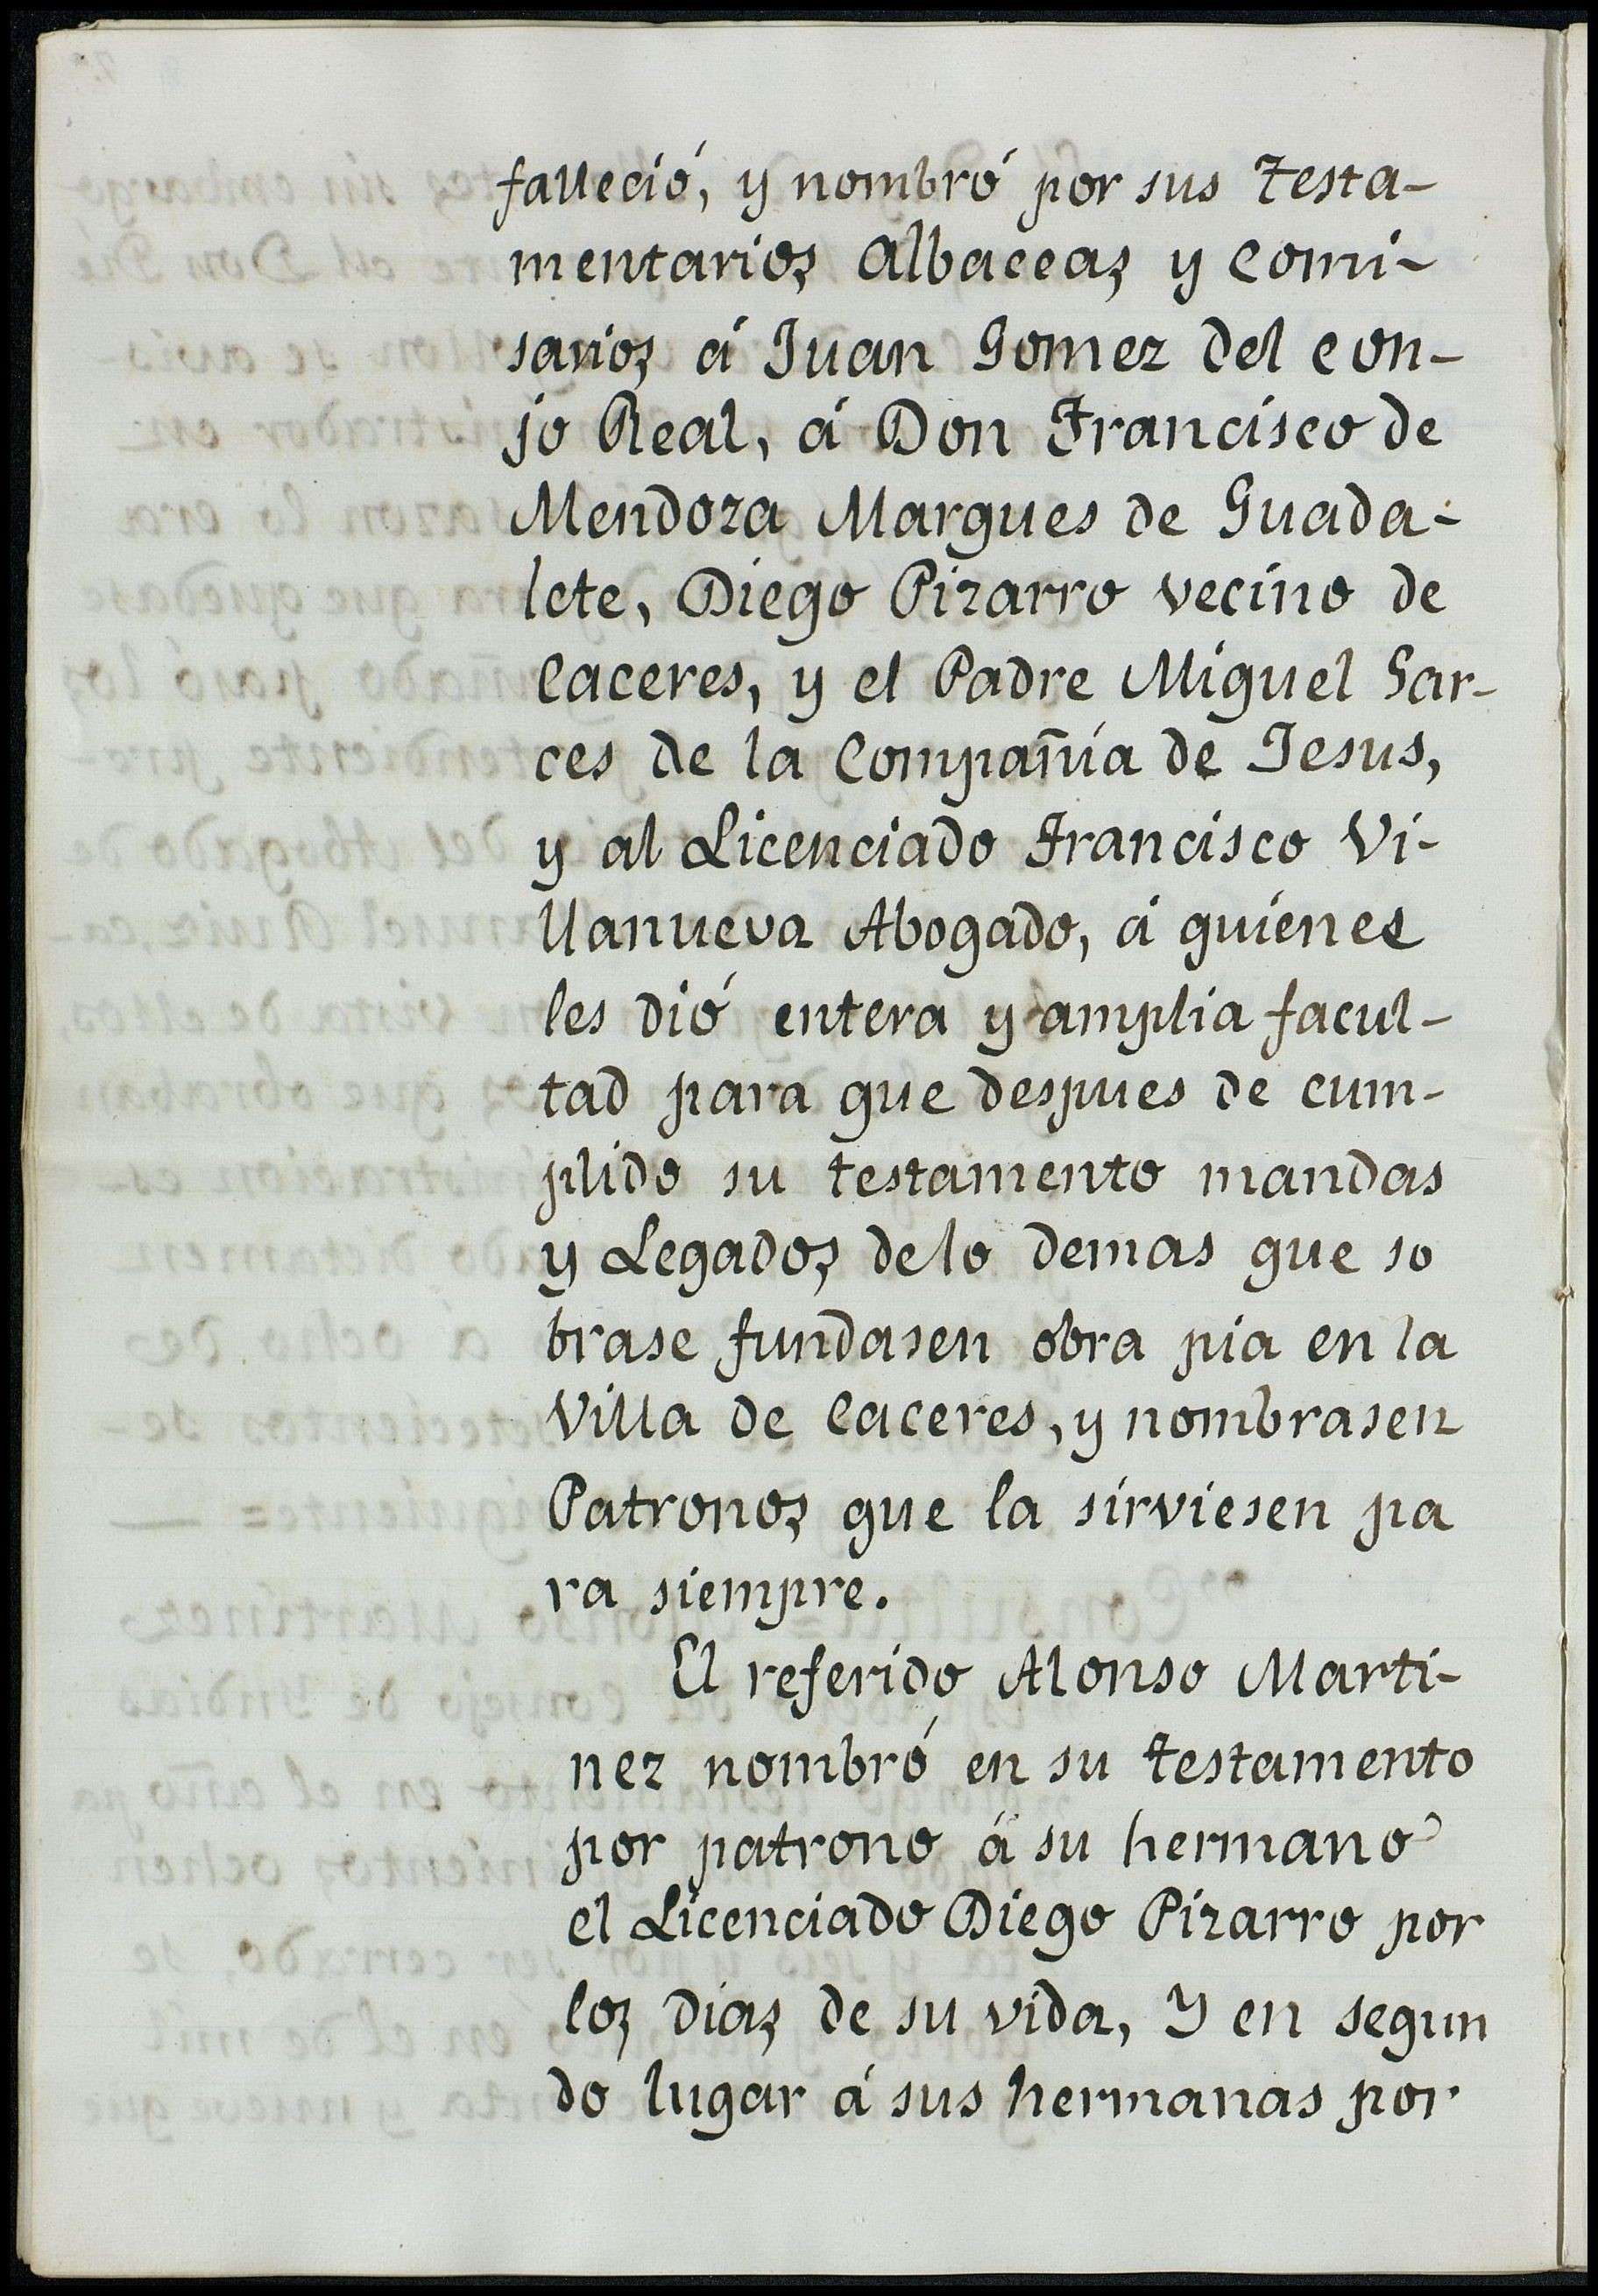 falleció, y nombró por sus testa-
mentarios Albaceas y Comi-
sarios á Juan Gomez del con-
jo Real, á Don Francisco de
Mendoza Margues de Guada-
lete, Diego Pizarro vecino de
Caceres, y el Padre Miguel Gar-
ces de la Compañía de Jesus,
y al Licenciado Francisco Vi-
llanueva Abogado, á quienes
les dió entera y amplia facul-
tad para que despues de cum-
plido su testamento mandas
y Legados de lo demas que so
brase fundasen obra pia en la
Villa de Caceres, y nombrasen
Patronos que la sirviesen pa
ra siempre.
El referido Alonso Marti-
nez nombró en su testamento
por patrono á su hermano
el Licenciado Diego Pizarro por
los dias de su vida, Y en segun
do lugar á sus hermanas por